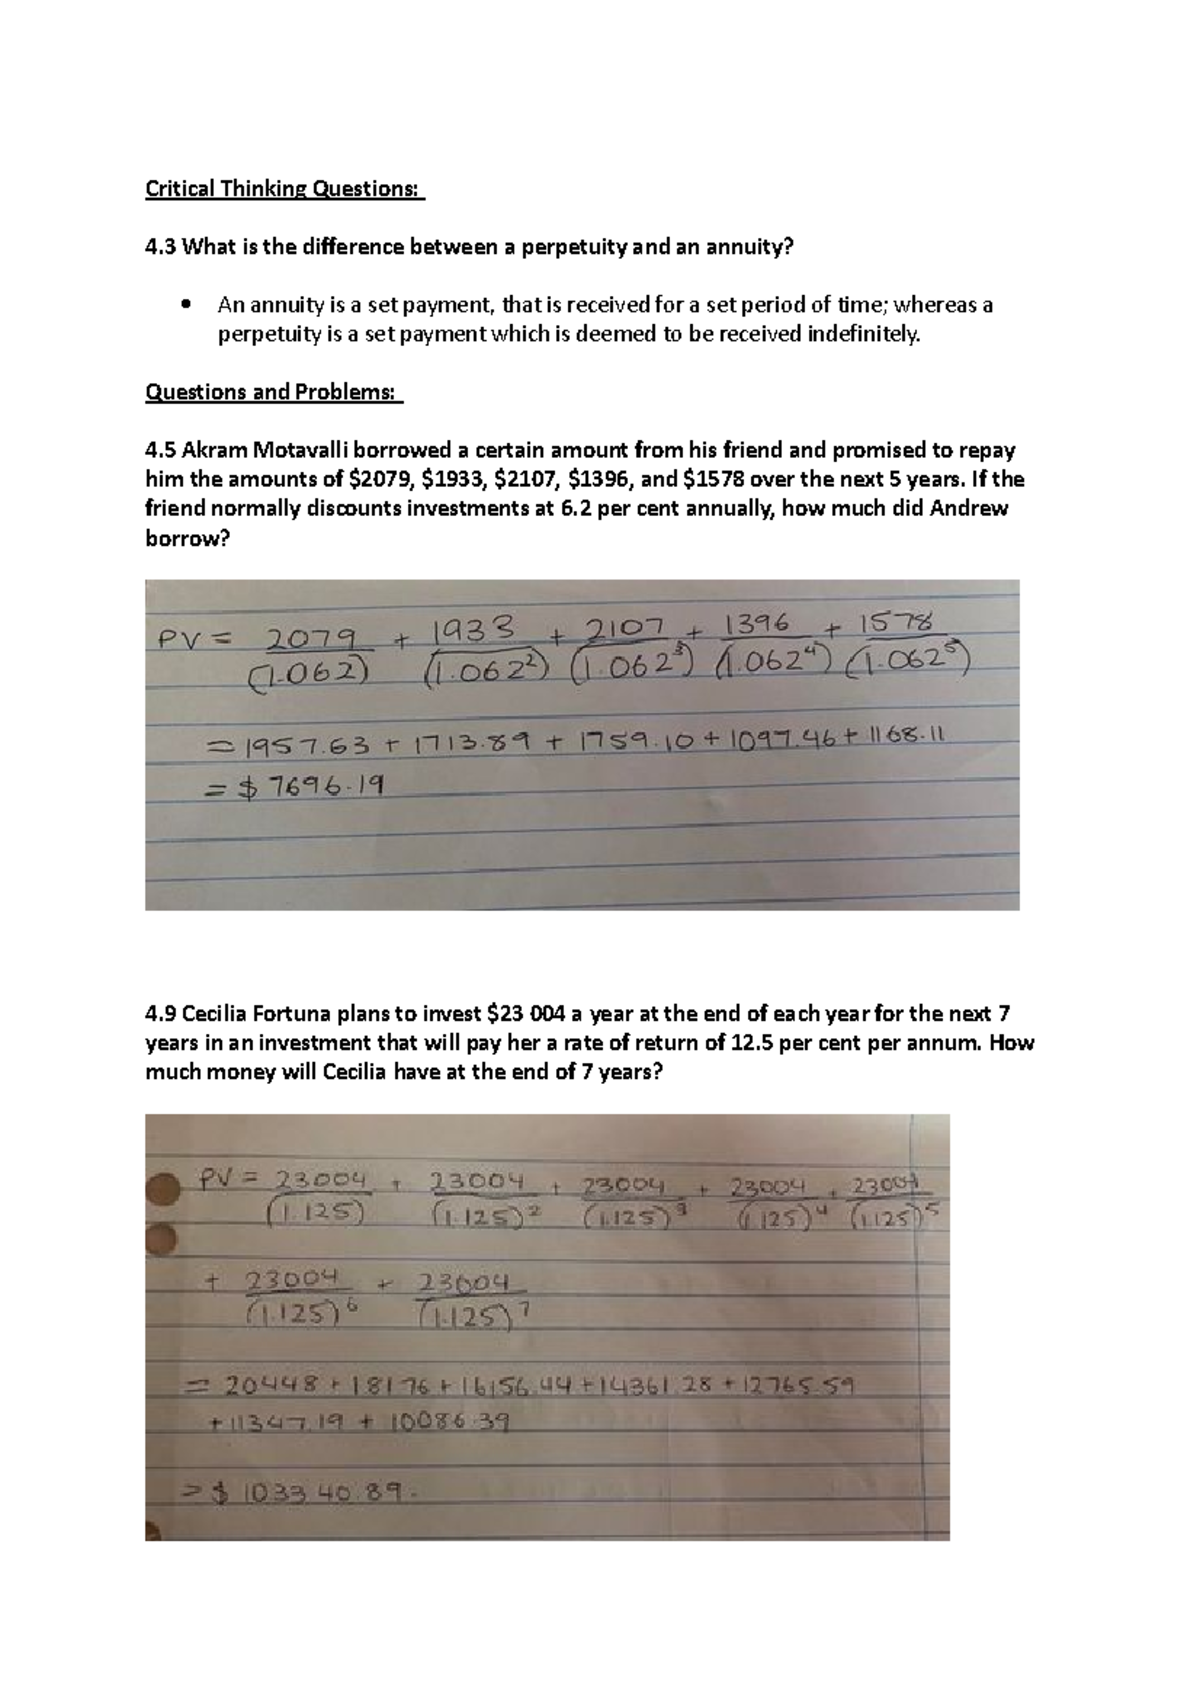 Critical Thinking Questions:
4.3 What is the difference between a perpetuity and an annuity?
• An annuity is a set payment, that is received for a set period of time; whereas a
perpetuity is a set payment which is deemed to be received indefinitely.
Questions and Problems:
4.5 Akram Motavalli borrowed a certain amount from his friend and promised to repay
him the amounts of $2079, $1933, $2107, $1396, and $1578 over the next 5 years. If the
friend normally discounts investments at 6.2 per cent annually, how much did Andrew
borrow?
PV = 2079 + 1933 + 2107 + 1396 + 1578
(1.062) (1.062²) (1.062³) (1.062⁴) (1.062⁵)
= 1957.63 + 1713.89 + 1759.10 + 1097.46 + 1168.11
= $ 7696.19
4.9 Cecilia Fortuna plans to invest $23 004 a year at the end of each year for the next 7
years in an investment that will pay her a rate of return of 12.5 per cent per annum. How
much money will Cecilia have at the end of 7 years?
PV = 23004 + 23004 + 23004 + 23004 + 23004
(1.125) (1.125)² (1.125)³ (1.125)⁴ (1.125)⁵
+ 23004 + 23004
(1.125)⁶ (1.125)⁷
= 20448 + 18176 + 16156.44 + 14361.28 + 12765.59
+ 11347.19 + 10086.39
= $ 103340.89.